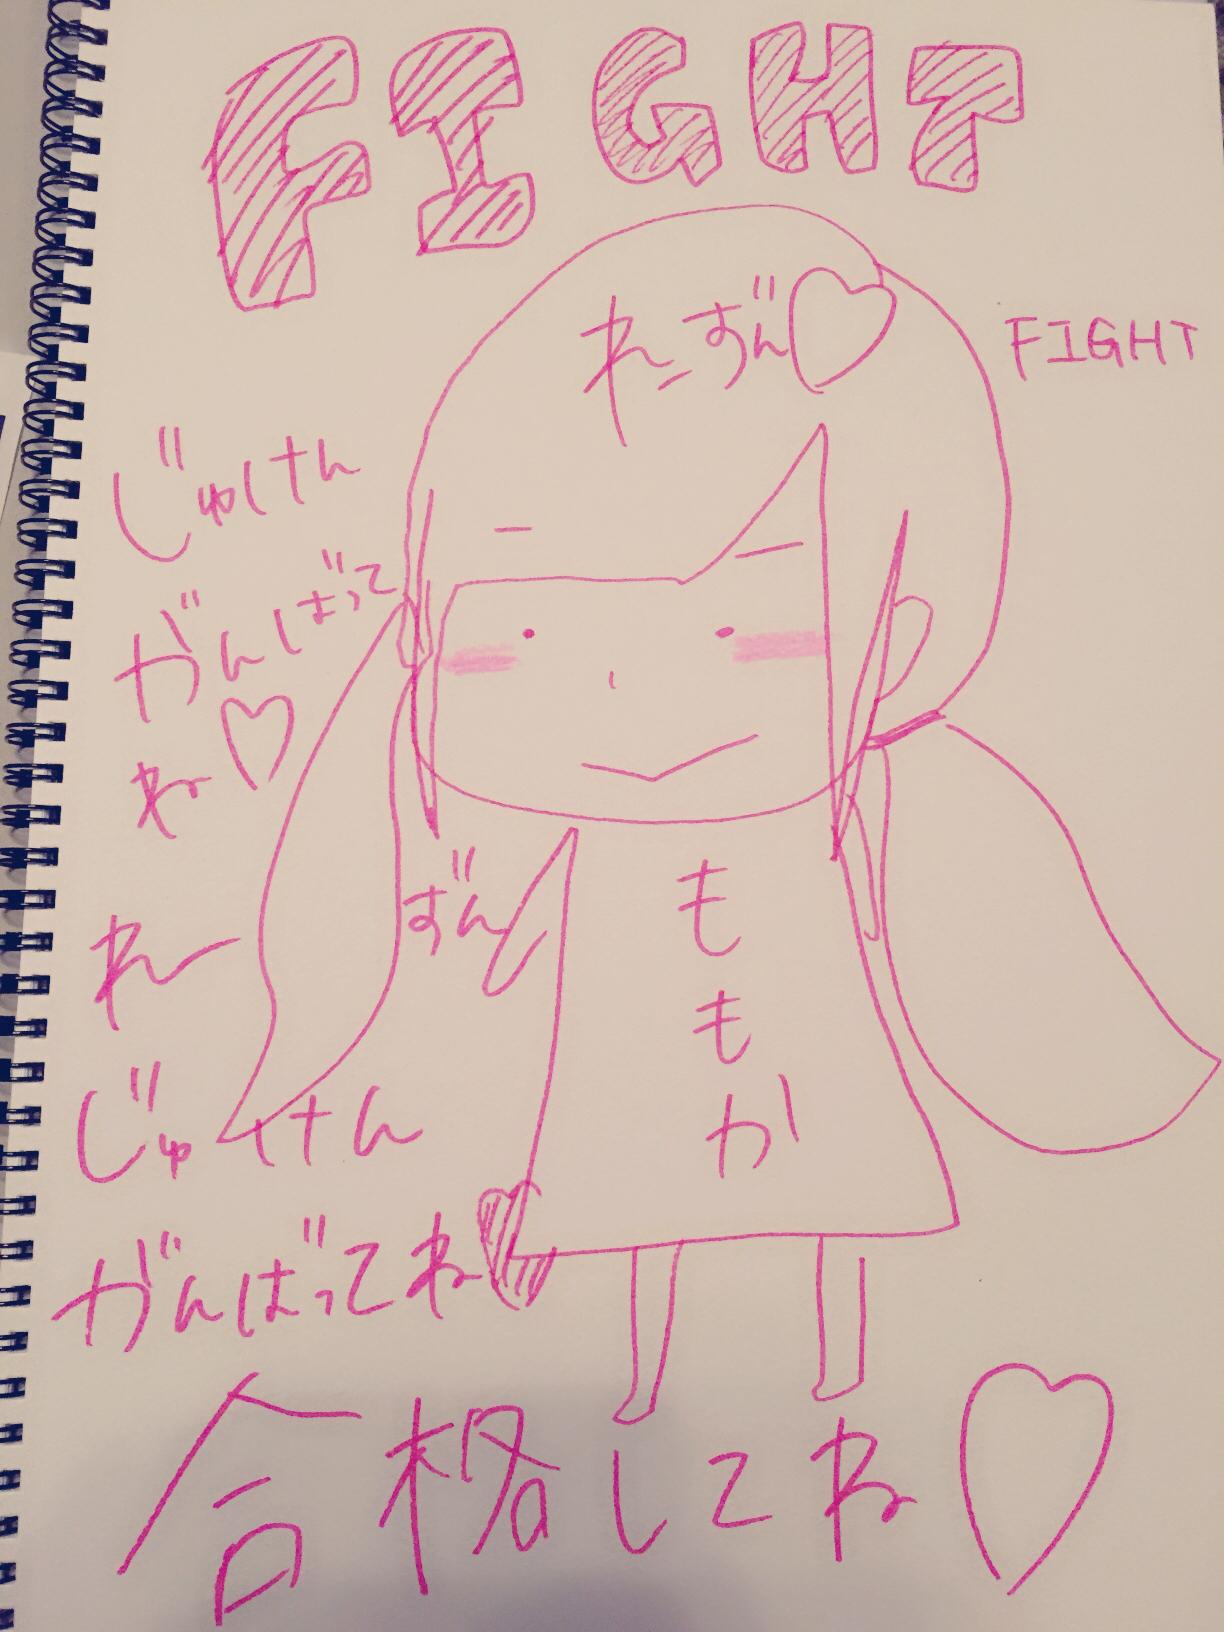 FIGHT
れーずん♡
FIGHT
じゅけん
がんばって
ね♡
れーずん
じゅけん
がんばってね♡
ももか
合格してね♡